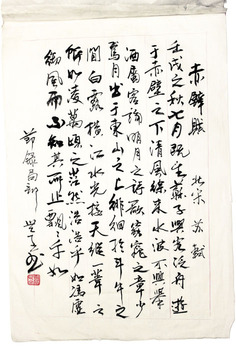 赤壁賦
北宋 苏轼
壬戌之秋七月既望蘇子與客泛舟遊
于赤壁之下清風徐來水波不興舉
酒屬客誦明月之詩歌窈窕之章少
焉月出于東山之上徘徊於斗牛之
間白露橫江水光接天縱一葦之
所如凌萬頃之茫然浩浩乎如馮虛
御風而不知其所止飄飄乎如
節錄局部
書